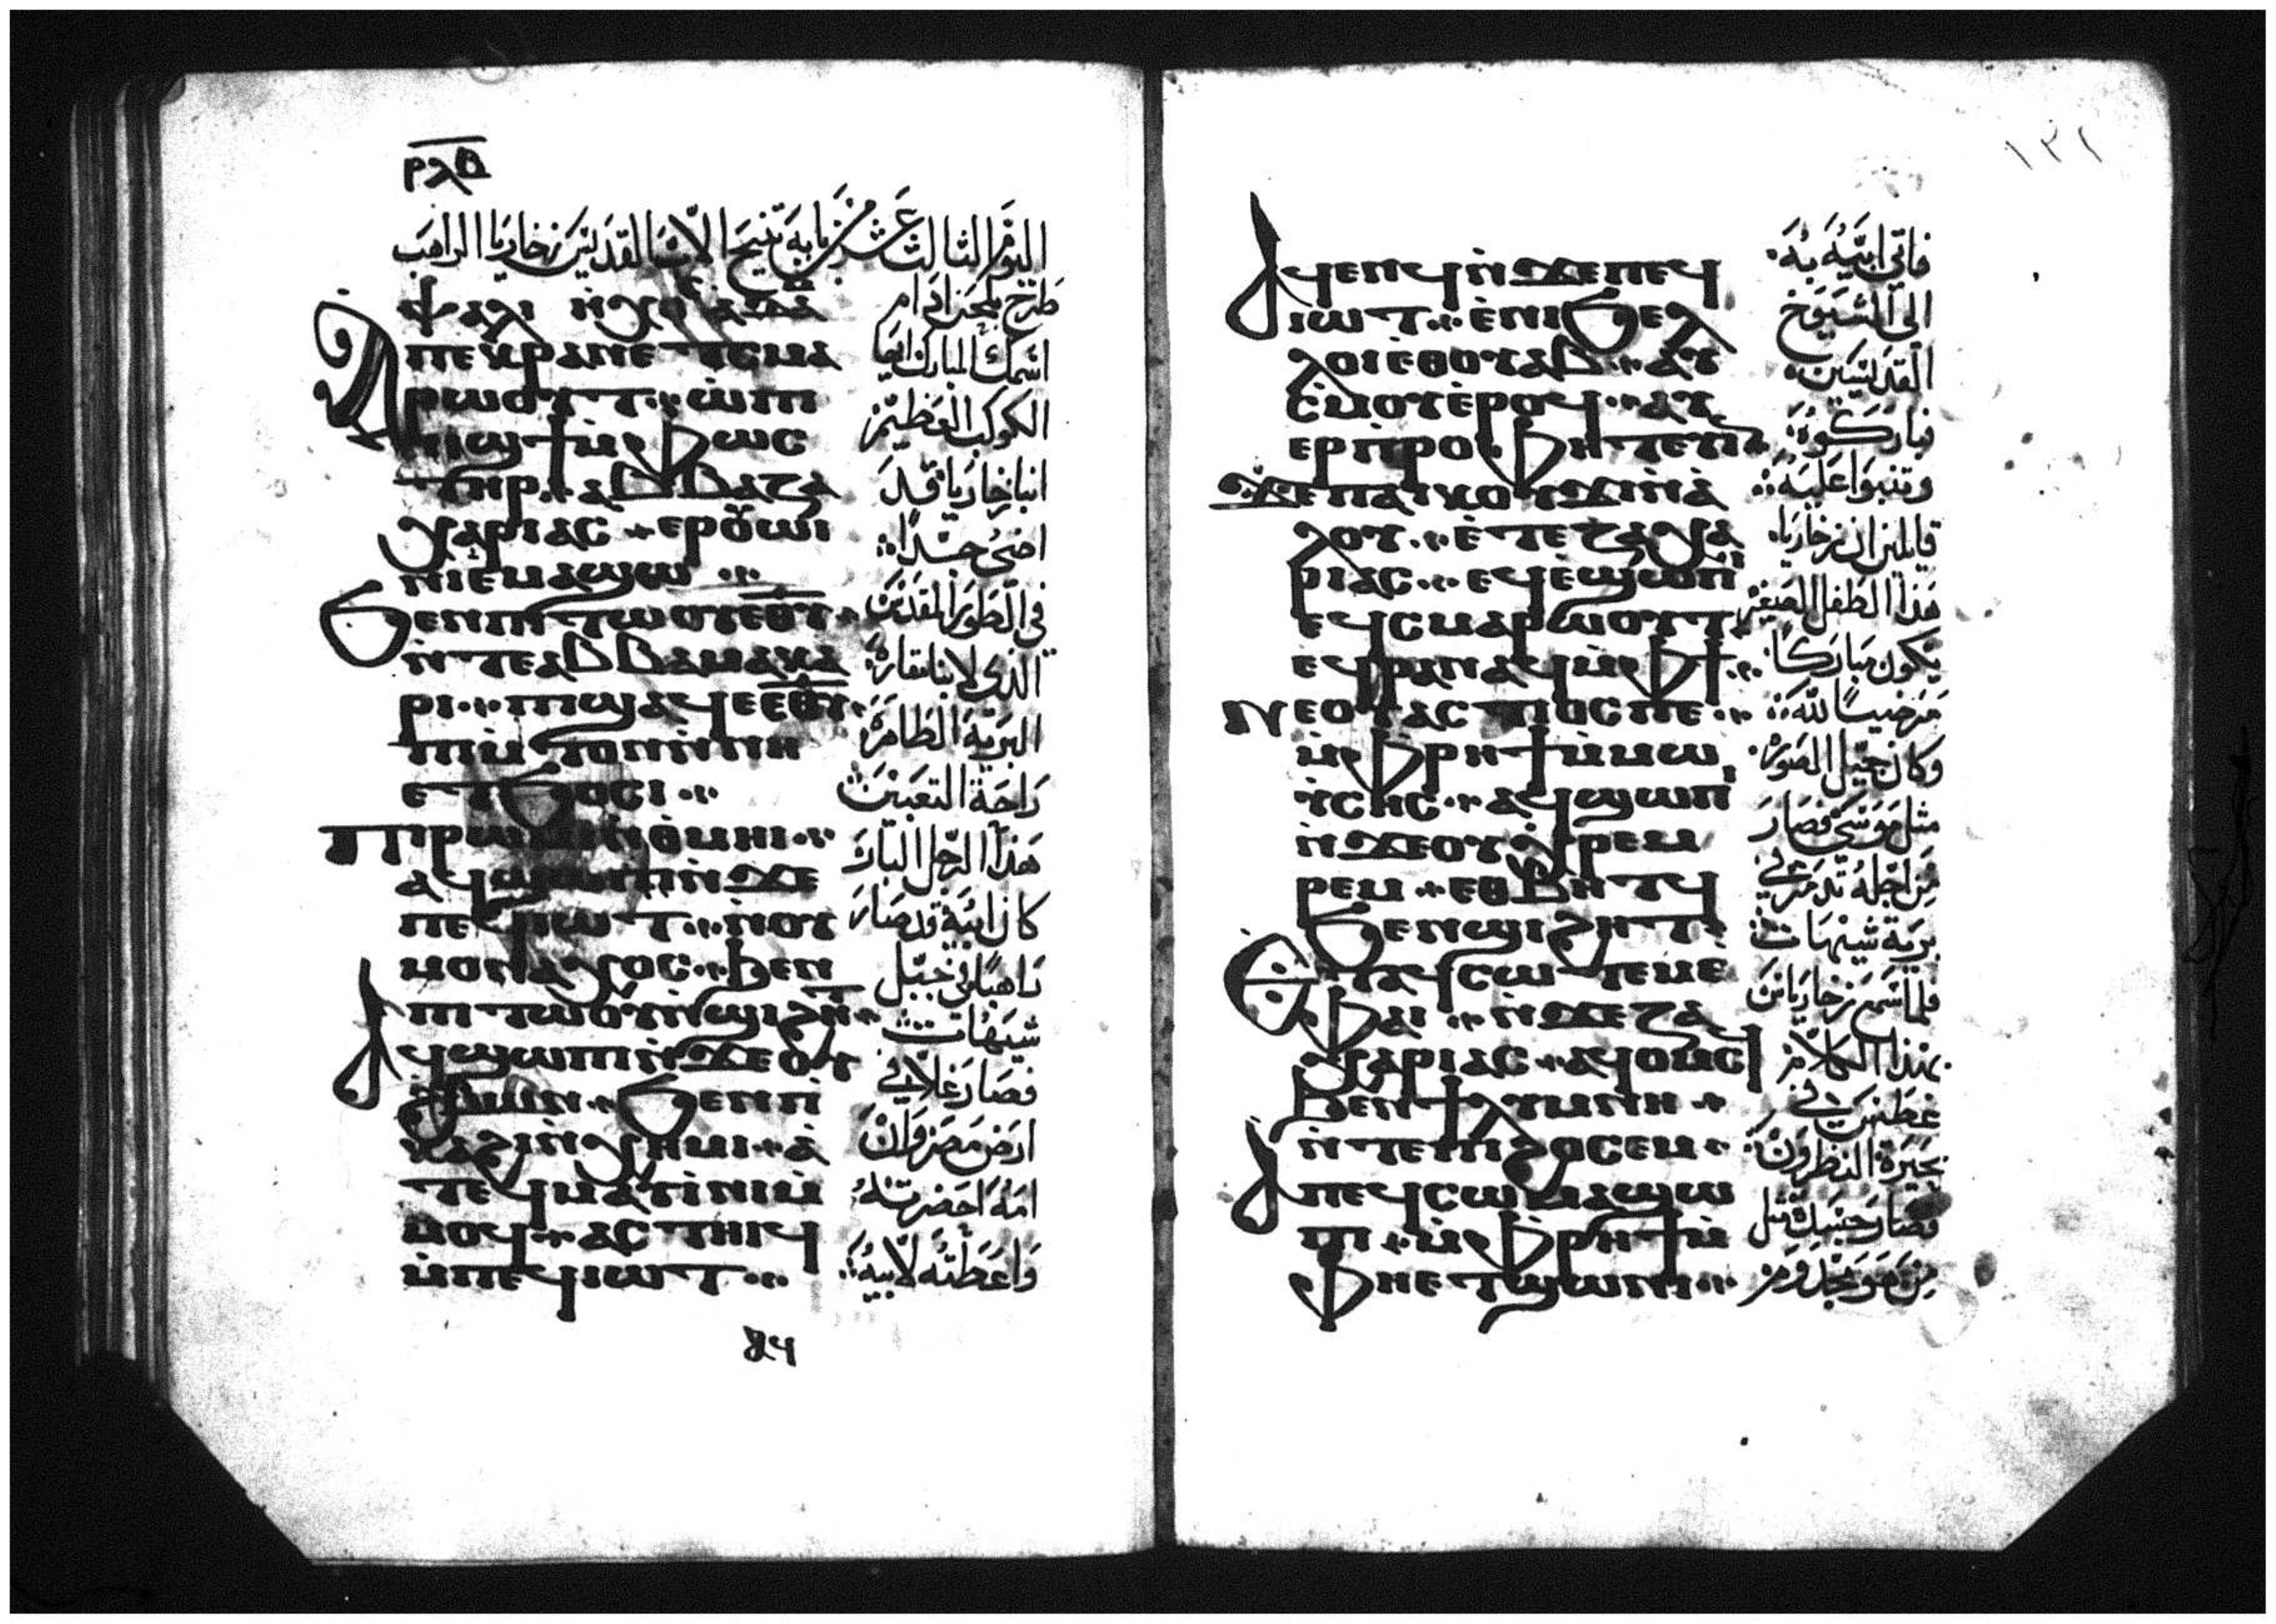 ⲣⲗⲃ
اليوم الثالث عشر من بابه تنيح الاب القديس زخاريا الراهب
ⲯⲁⲗⲓ ⲛ̀ⲭⲟⲥ ⲁⲇⲁⲙ
ⲡⲉⲕⲣⲁⲛ ⲉⲧⲥⲙⲁ
ⲣⲱⲟⲩⲧ ⲱ̀ⲡⲓ
ⲛⲓϣϯ ⲙ̀ⲫⲱⲥ
ⲧⲏⲣ ⲁⲃⲃⲁ ⲍⲁ
ⲭⲁⲣⲓⲁⲥ ⲉⲣⲟⲩⲱⲓ
ⲛⲓ ⲉⲙⲁϣⲱ
ϧⲉⲛ ⲡⲓⲧⲱⲟⲩ ⲉⲑⲩ
ⲛ̀ⲧⲉ ⲁⲃⲃⲁ ⲙⲁⲕⲁ
ⲣⲓ ⲡⲓϣⲁϥⲉ ⲉⲑⲩ
ⲡⲓⲙ̀ⲧⲟⲛ ⲛ̀ⲛⲏ
ⲉⲧϧⲟⲥⲓ
ⲡⲓⲣⲱⲙⲓ ⲛ̀ⲑⲙⲏⲓ
ⲁϥϣⲱⲡⲓ ⲛ̀ϫⲉ
ⲡⲉϥⲓⲱⲧ ⲛ̀ⲟⲩ
ⲙⲟⲛⲁⲭⲟⲥ ϧⲉⲛ
ⲡⲓⲧⲱⲟⲩ ⲛ̀ϣⲓϩⲏⲧ
ⲁϥϣⲱⲡⲓ ⲛ̀ϫⲉ ⲟⲩ
ϩⲃⲱⲛ ϧⲉⲛ ⲡ̀
ⲕⲁϩⲓ ⲛ̀ⲭⲏⲙⲓ ⲁ̀
ⲧⲉϥⲙⲁⲩ ⲓ̀ⲛⲓ ⲙ̀
ⲙⲟϥ ⲁⲥⲧⲏⲓϥ
ⲙ̀ⲡⲉϥⲓⲱⲧ
طرح بلحن ادام
اسمك المبارك ايها
الكوكب العظيم
انبا زخاريا قد
اضئ جدًا
في الطور المقدس
الذى لابنا مقاره
البرية الطاهرة
راحة التعبين
هذا الرجل البار
كان ابيه قد صار
راهبًا في جبل
شيهات
فصار غلا في
ارض مصر وان
امه احضرته
واعطته لابيه
ⲁϥ
١٣٢
ⲁϥⲉⲛϥ ⲛ̀ϫⲉ ⲡⲉϥ
ⲓⲱⲧ ⲉ̀ⲛⲓϧⲉⲗ
ⲗⲟⲓ ⲉⲑⲟⲩⲁⲃ ⲁⲩ
ⲥ̀ⲙⲟⲩ ⲉ̀ⲣⲟϥ ⲁⲩ
ⲉⲣⲡ̀ⲣⲟⲫⲏⲧⲉⲩⲓⲛ
ϫⲉ ⲡⲁⲓⲕⲟⲩϫⲓ ⲛ̀ⲁ̀
ⲗⲟⲩ ⲉ̀ⲧⲉ ⲍⲁⲭⲁ
ⲣⲓⲁⲥ ⲉϥⲉ̀ϣⲱⲡⲓ
ⲉϥⲥⲙⲁⲣⲱⲟⲩⲧ
ⲉϥⲣⲁⲛⲁϥ ⲙ̀ⲫϯ
ⲛⲉ ⲟⲩⲁⲥⲧⲓⲟⲥ ⲡⲉ
ⲙ̀ⲫⲣⲏϯ ⲙ̀ⲙⲱ
ⲩⲥⲏⲥ ⲁϥϣⲱⲡⲓ
ⲛ̀ϫⲉ ⲟⲩⲭ̀ⲣⲉⲙ
ⲣⲉⲙ ⲉⲑⲃⲏⲧϥ
ϧⲉⲛ ϣⲓϩⲏⲧ
ⲉⲧⲁϥⲥⲱⲧⲉⲙ ⲉ̀
ⲫⲁⲓ ⲛ̀ϫⲉ ⲍⲁ
ⲭⲁⲣⲓⲁⲥ ⲁϥⲟⲙⲥϥ
ϧⲉⲛ ϯⲗⲩⲙⲛⲏ
ⲛ̀ⲧⲉ ⲡⲓϩⲟⲥⲉⲙ
ⲁ̀ ⲡⲉϥⲥⲱⲙⲁ ϣⲱ
ⲡⲓ ⲙ̀ⲫⲣⲏϯ ⲙ̀
ⲫⲏ ⲉⲧϣⲱⲛⲓ
فاتى ابيه به
الى الشيوخ
القديسين
فباركوه
وتنبوا عليه
قايلين ان زخاريا
هذا الطفل الصغير
يكون مباركًا
مرضيًا لله
وكان جميل الصوره
مثل موسى فصار
من اجله تذمر في
برية شيهات
فلما سمع زخارياس
بهذا الكلام
غطس في
بحيرة النطرون
فصار جسده مثل
من هو مجذوم